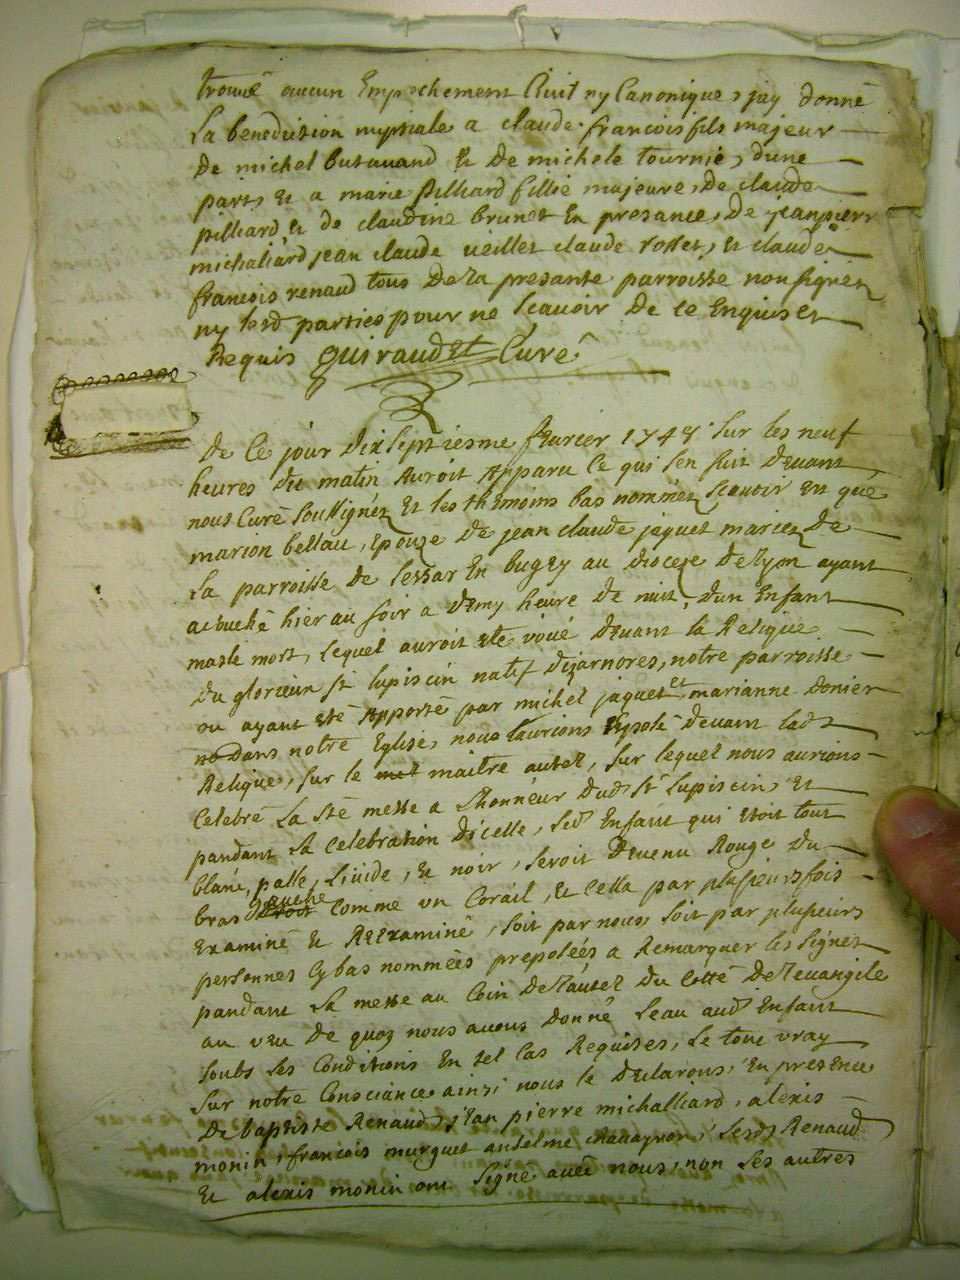 trouvé aucun Empechement Civil ny Canonique, jay donné
La benediction nuptiale a claude françois fils majeur
De michel butavand & De michele tournie, dune
part, et a marie pilliard fillie majeure, De claude
pilliard, & de claudine brunet En presance, De jean pierre
michaliard jean claude veillet claude rosset, et claude
francois renaud tous De la presante parroisse non signez
ny lesd parties pour ne scavoir De ce Enquis et
Requis guiraudet Curé
De Ce jour Dix septiesme fevrier 1747 sur les neuf
heures Du matin Auroit Apparu ce qui sen suit Devant
nous Curé soussignéz Et les themoins bas nommez, scavoir est que
marion bellau, Epouze De jean claude jaquet mariez De
La parroisse de Lessar En bugey au diocese De Lyon ayant
acouché hier au soir a Demy heure De nuit, Dun Enfant
masle mort, lequel auroit ete voué Devant la Relique
Du glorieux st lupiscin natif Dejarnores, notre parroisse
ou ayant eté Apporté par michel jaquet et marianne Donier
Dans notre Eglise, nous laurions Exposé Devant lad
Relique, sur le maitre autel, sur lequel nous aurions
Celebré La Ste messe a Lhonneur Dud St Lupiscin, et
pandant La Celebration Dicelle, led Enfant qui etoit tout
blanc, palle, Livide, & noir, seroit Devenu Rouge Du
bras gauche Comme un Corail, & Cella par plusieurs fois
Examiné & REExaminé, soit par nous, soit par plusieurs
personnes Cy bas nommées preposéés a Remarquer les signes
pandant La messe au Coin De lautel Du Cotté De levangile
au veu De quoy nous avons Donné Leau aud Enfant
soubs les Conditions En tel Cas Requises, Le tout vray
sur notre Consciance ainsi nous le Declarons, En presence
De baptiste Renaud, jean pierre michalliard, alexis
monin, francois murguet anselme Lesd Renaud
& alexis monin ont signé avec nous, non Les autres